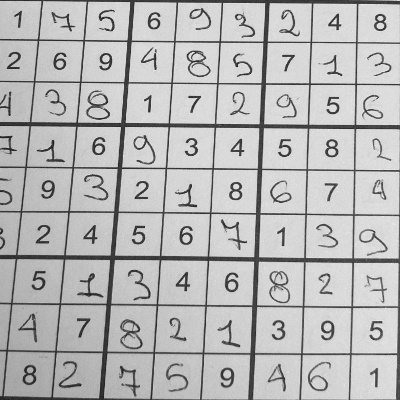 1 7 5 6 9 3 2 4 8
2 6 9 4 8 5 7 1 3
4 3 8 1 7 2 9 5 6
7 1 6 9 3 4 5 8 2
5 9 3 2 1 8 6 7 4
2 4 5 6 7 1 3 9
5 1 3 4 6 8 2 7
4 7 8 2 1 3 9 5
8 2 7 5 9 4 6 1